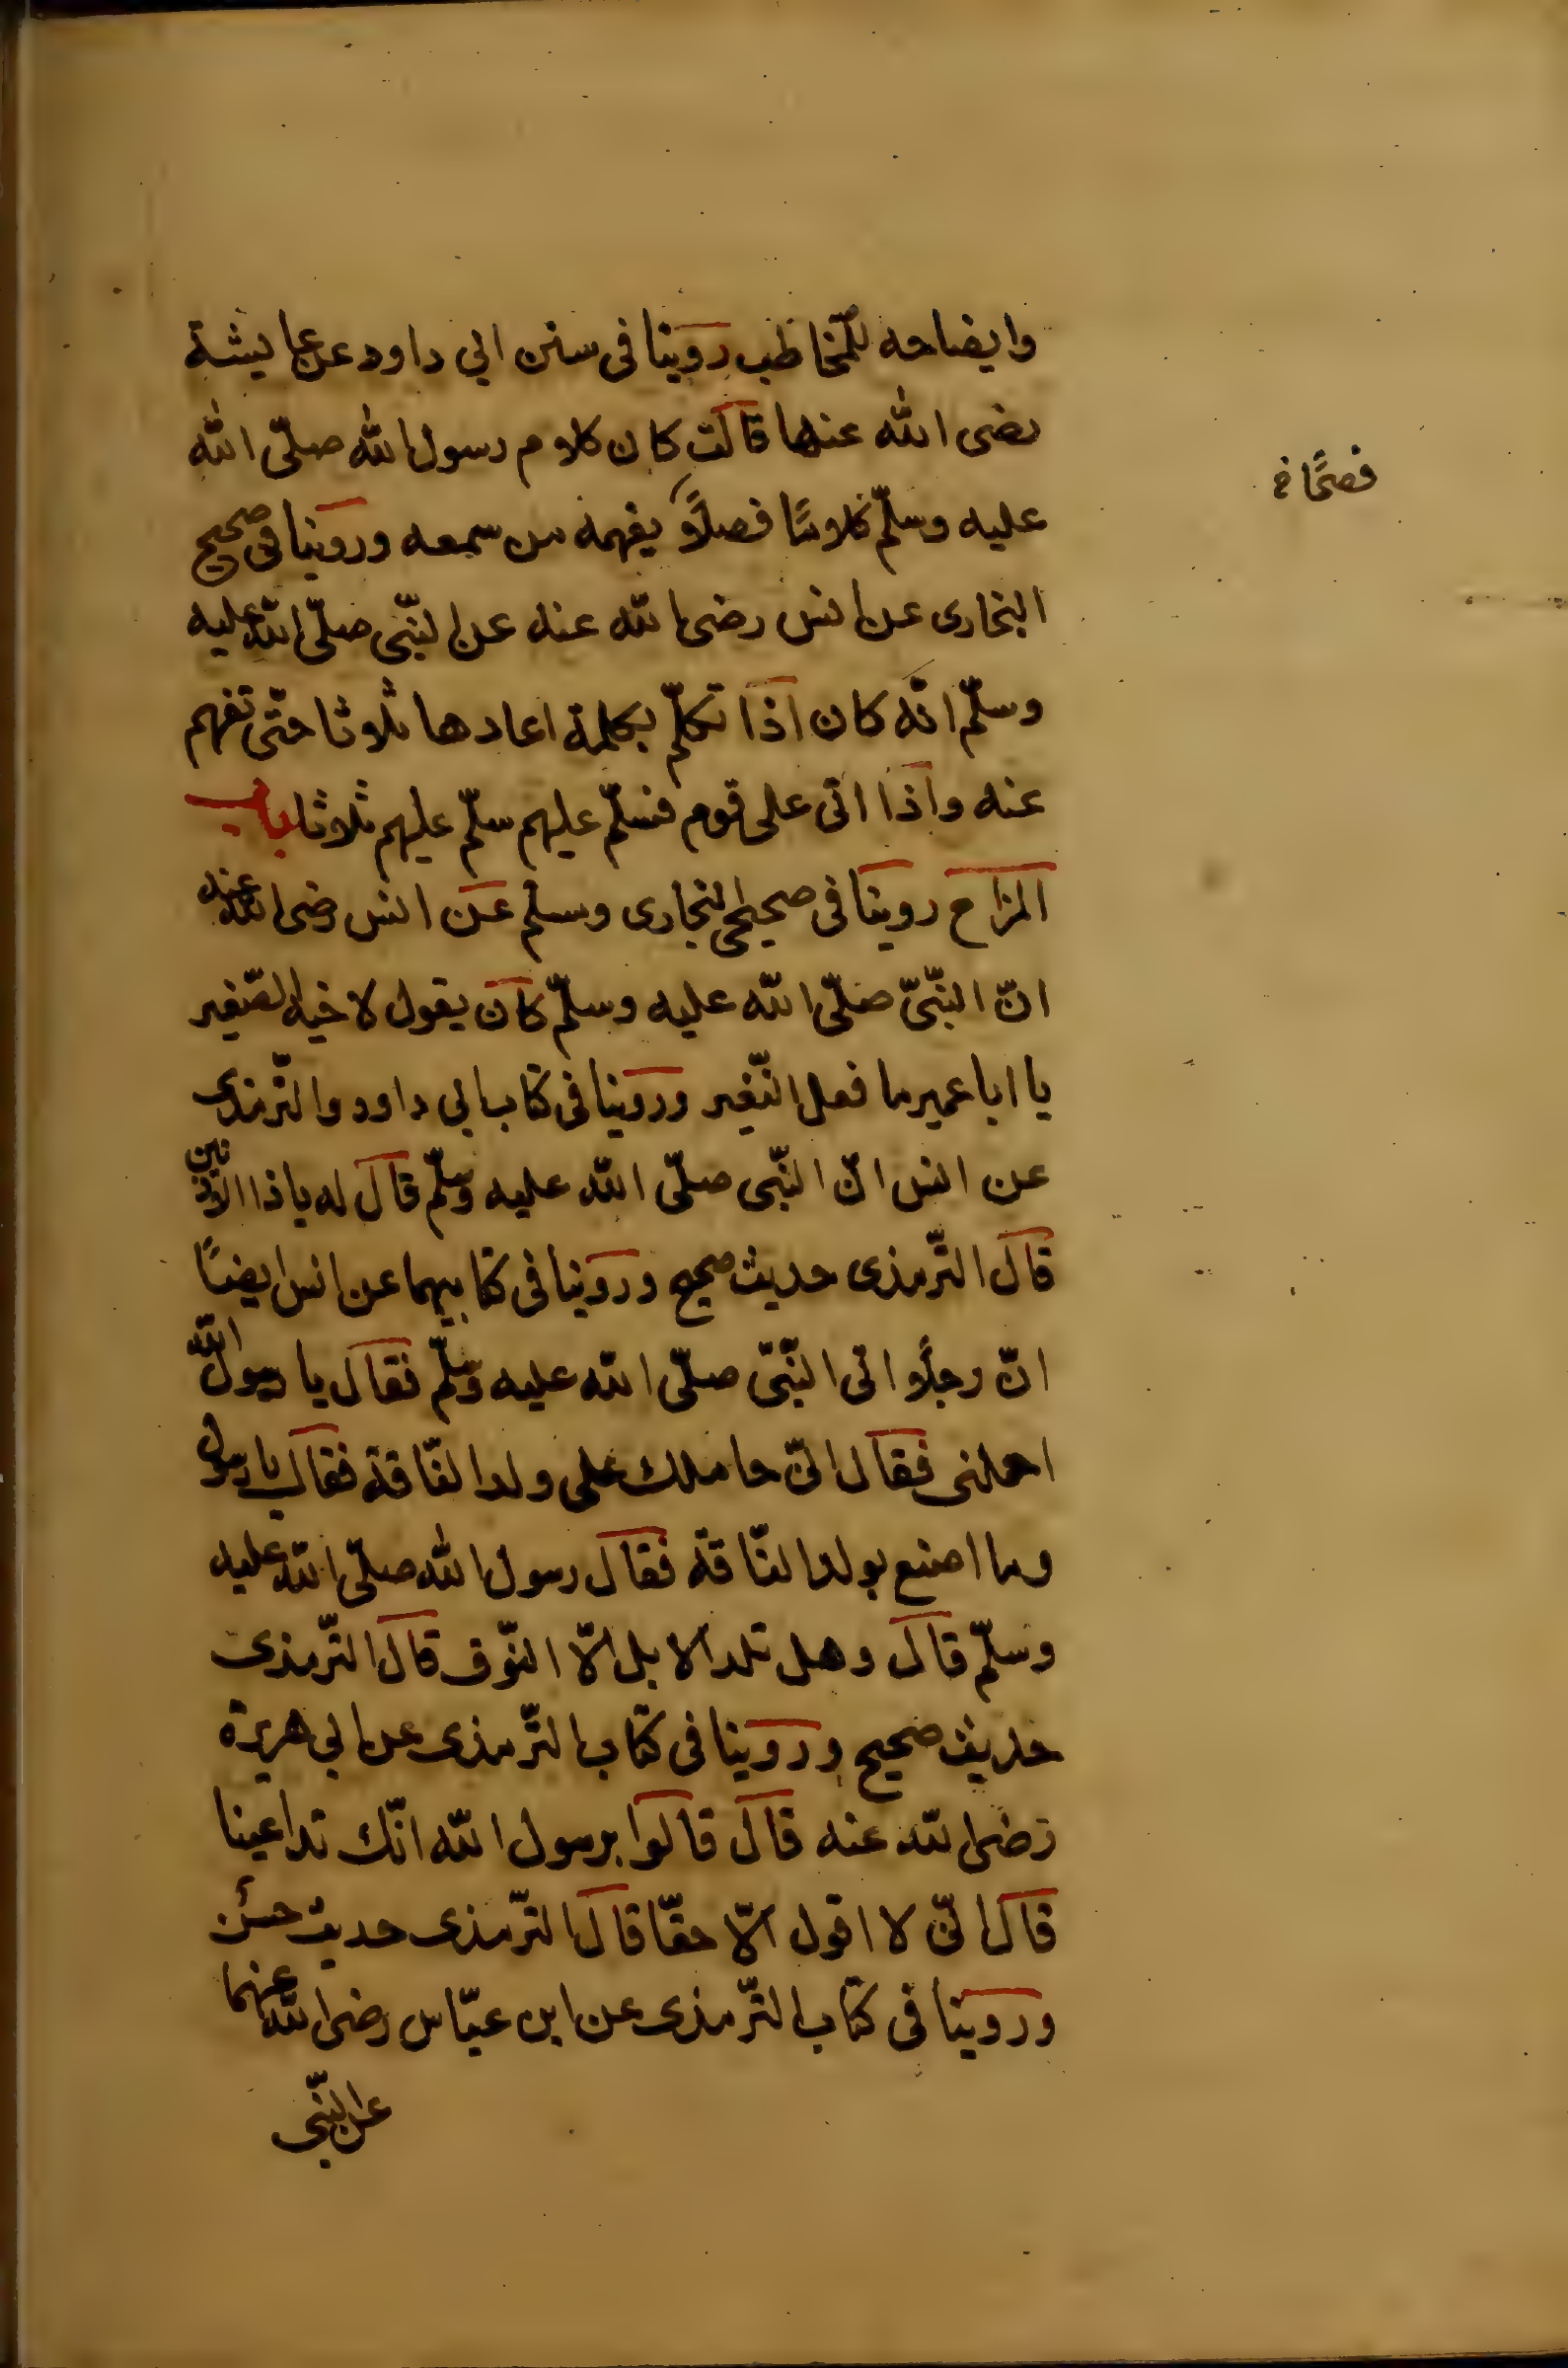 وايضاحه للمخاطب روينا فى سنن ابي داود عن عايشة
رضى الله عنها قالت كان كلام رسول الله صلّى الله
عليه وسلّم كلامًا فصلًا يفهمه من سمعه وروينا فى صحيح
فصحًا خ
البخارى عن انس رضى الله عنه عن النّبى صلّى الله عليه
وسلّم انّه كان اذا تكلّم بكلمة اعادها ثلاثا حتّى تفهم
عنه واذا اتى على قوم فسلّم عليهم سلّم عليهم ثلاثا باب
المزاح روينا فى صحيحى البخارى ومسلم عن انس رضى الله عنه
انّ النّبىّ صلّى الله عليه وسلّم كان يقول لاخيه الصّغير
يا ابا عمير ما فعل النّغير وروينا فى كتاب ابى داود والتّرمذى
عن انس انّ النّبى صلّى الله عليه وسلّم قال له ياذا الاذنين
قال التّرمذى حديث صحيح وروينا فى كتابيهما عن انس ايضًا
انّ رجلًا اتى النّبىّ صلّى الله عليه وسلّم فقال يا رسول الله
احملنى فقال انّى حاملك على ولد النّاقة فقال يا رسول
وما اصنع بولد النّاقة فقال رسول الله صلّى الله عليه
وسلّم قال وهل تلد الابل الّا النّوق قال التّرمذى
حديث صحيح وروينا فى كتاب التّرمذى عن ابى هريرة
رضى الله عنه قال قالوا يرسول الله انّك تداعبنا
قال انّى لا اقول الّا حقّا قال التّرمذى حديث حسن
وروينا فى كتاب التّرمذى عن ابن عبّاس رضى الله عنهما
عن النّبى